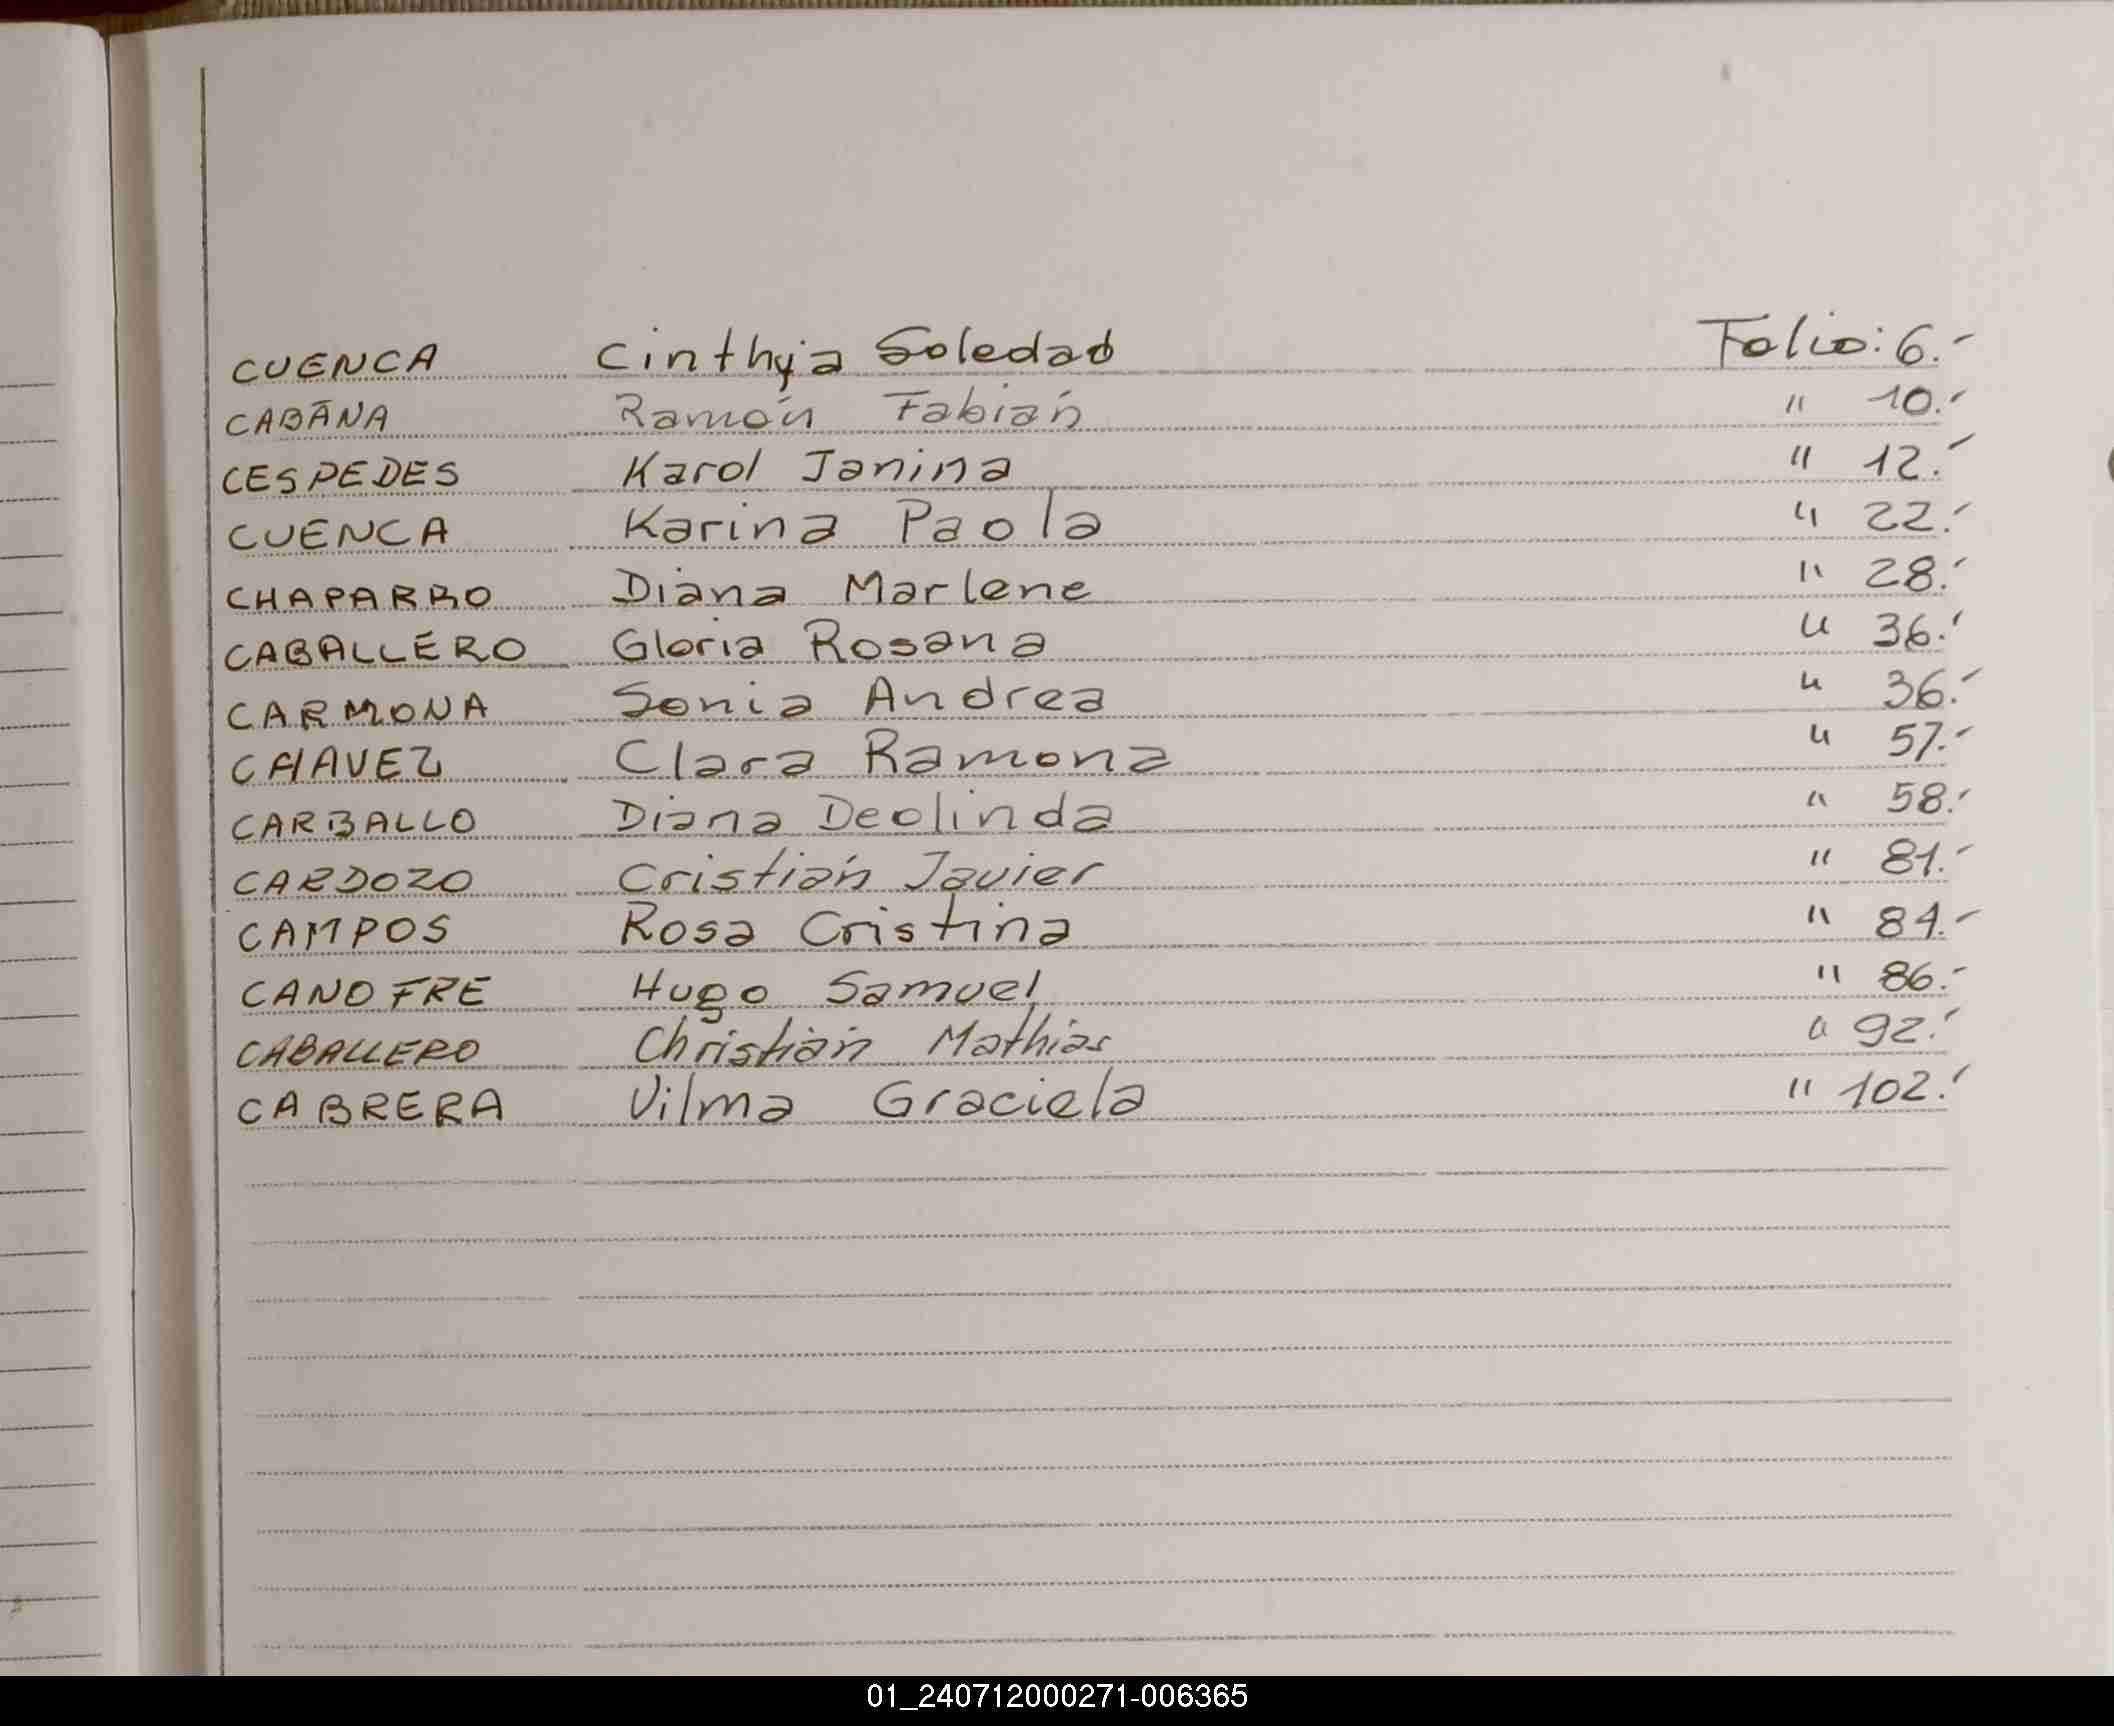 CUENCA Cinthya Soledad Folio: 6.-
CABAÑA Ramón Fabián " 10.-
CESPEDES Karol Janina " 12.-
CUENCA Karina Paola " 22.-
CHAPARRO Diana Marlene " 28.-
CABALLERO Gloria Rosana " 36.-
CARMONA Sonia Andrea " 36.-
CHAVEZ Clara Ramona " 57.-
CARBALLO Diana Deolinda " 58.-
CARDOZO Cristián Javier " 81.-
CAMPOS Rosa Cristina " 84.-
CANOFRE Hugo Samuel " 86.-
CABALLERO Christián Mathias " 92.-
CABRERA Vilma Graciela " 102.-
01_240712000271-006365